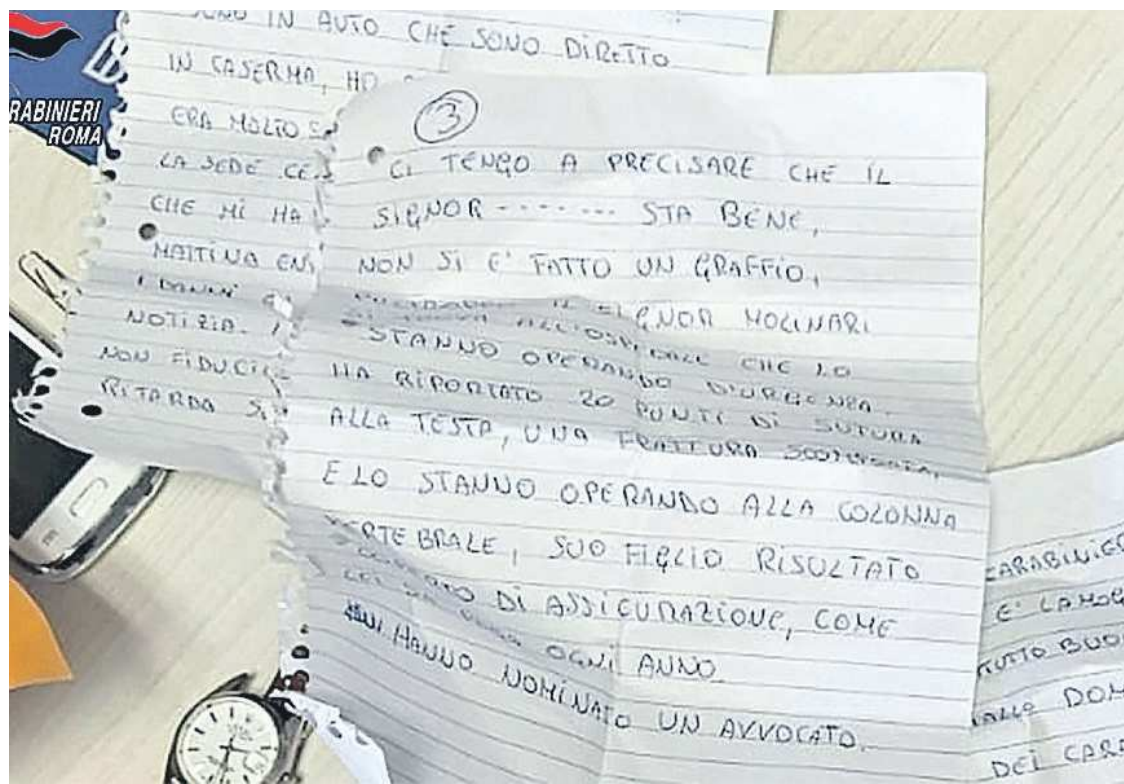 SONO IN AUTO CHE SONO DIRETTO
IN CASERMA, HO
ERA MOLTO
LA SEDE
CHE MI HA
MATTINA
I DANNI
NOTIZIA.
NON
RITARDA
RABINIERI
ROMA
3
CI TENGO A PRECISARE CHE IL
SIGNOR - - - - - - - STA BENE,
NON SI E' FATTO UN GRAFFIO,
IL SIGNOR MOLINARI
ALL'OSPEDALE CHE LO
STANNO OPERANDO D'URGENZA.
HA RIPORTATO 20 PUNTI DI SUTURA
ALLA TESTA, UNA FRATTURA SCOMPOSTA,
E LO STANNO OPERANDO ALLA COLONNA
VERTEBRALE, SUO FIGLIO RISULTATO
DI ASSICURAZIONE, COME
OGNI ANNO
HANNO NOMINATO UN AVVOCATO.
CARABINIER
E' LA MOG
TUTTO BUO
DALLE DOM
DEI CAR